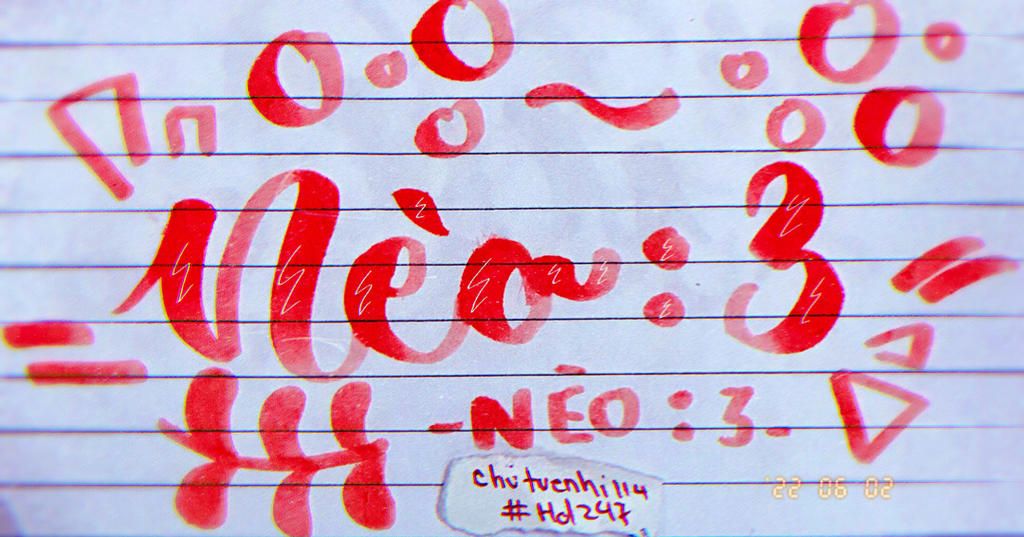 Nèo:3
-NÈO:3-
chútuenhi114
#Hd247
'22 06 02